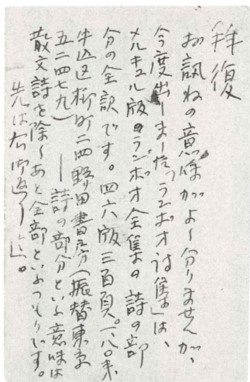 拝復
お訊ねの意味がよく分りませんが、
今度出しましたランボオ詩集」は、
メルキュル版のランボオ全集の詩の部
分の全訳です。四六版三百頁。一・八〇。東京
牛込区柳町二四野田書房（振替東京
五二四七九）――詩の部分といふ意味は
散文詩を除くあと全部といふつもりです。
先は右御返しまで。